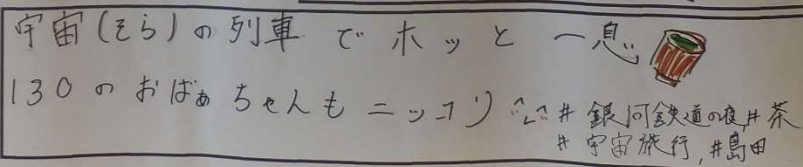 宇宙(そら)の列車でホッと一息
130のおばぁちゃんもニッコリ ^^
#銀河鉄道の夜,#茶
#宇宙旅行,#島田